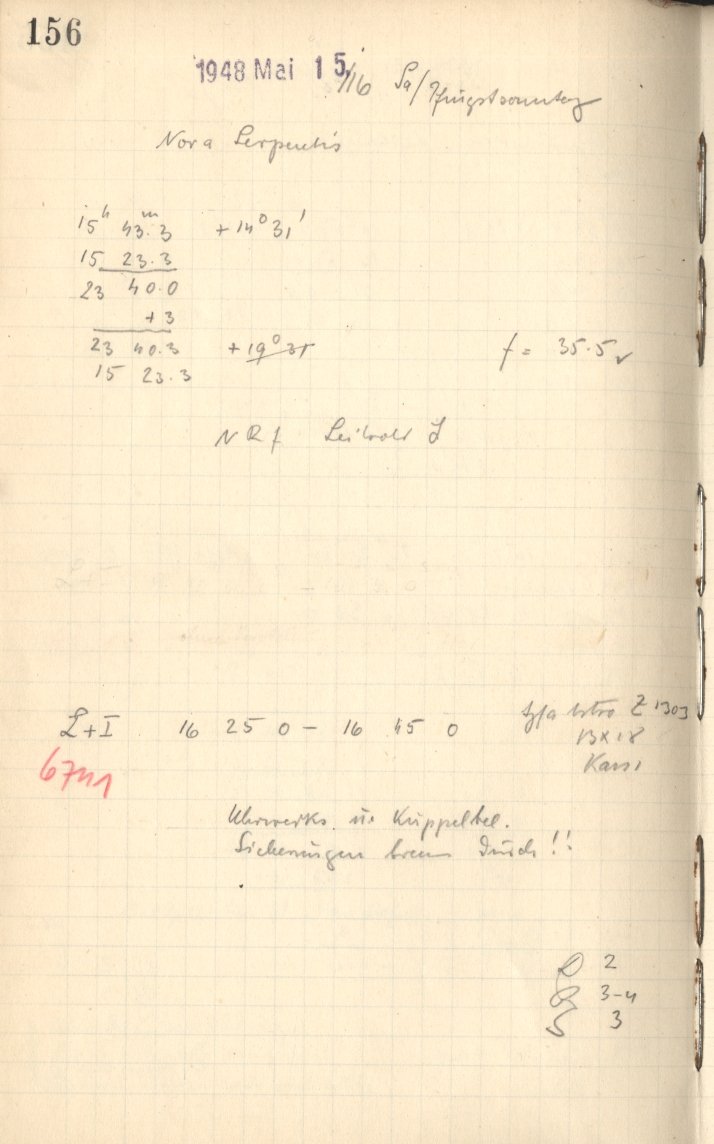 156
1948 Mai 15./16 Sa/Pfingstsonntag
Nova Serpentis
15h 43m.3 +14° 31'
15 23.3
23 40.0
+3
23 40.3 +19° 31 f = 35.5
15 23.3
NRf
L+I 16 25 0 – 16 45 0 Agfa Astro Z 1303
13x18
6741
Uhrwerks u. Kuppelbel.
Sicherungen brenn durch!!
2
3-4
3